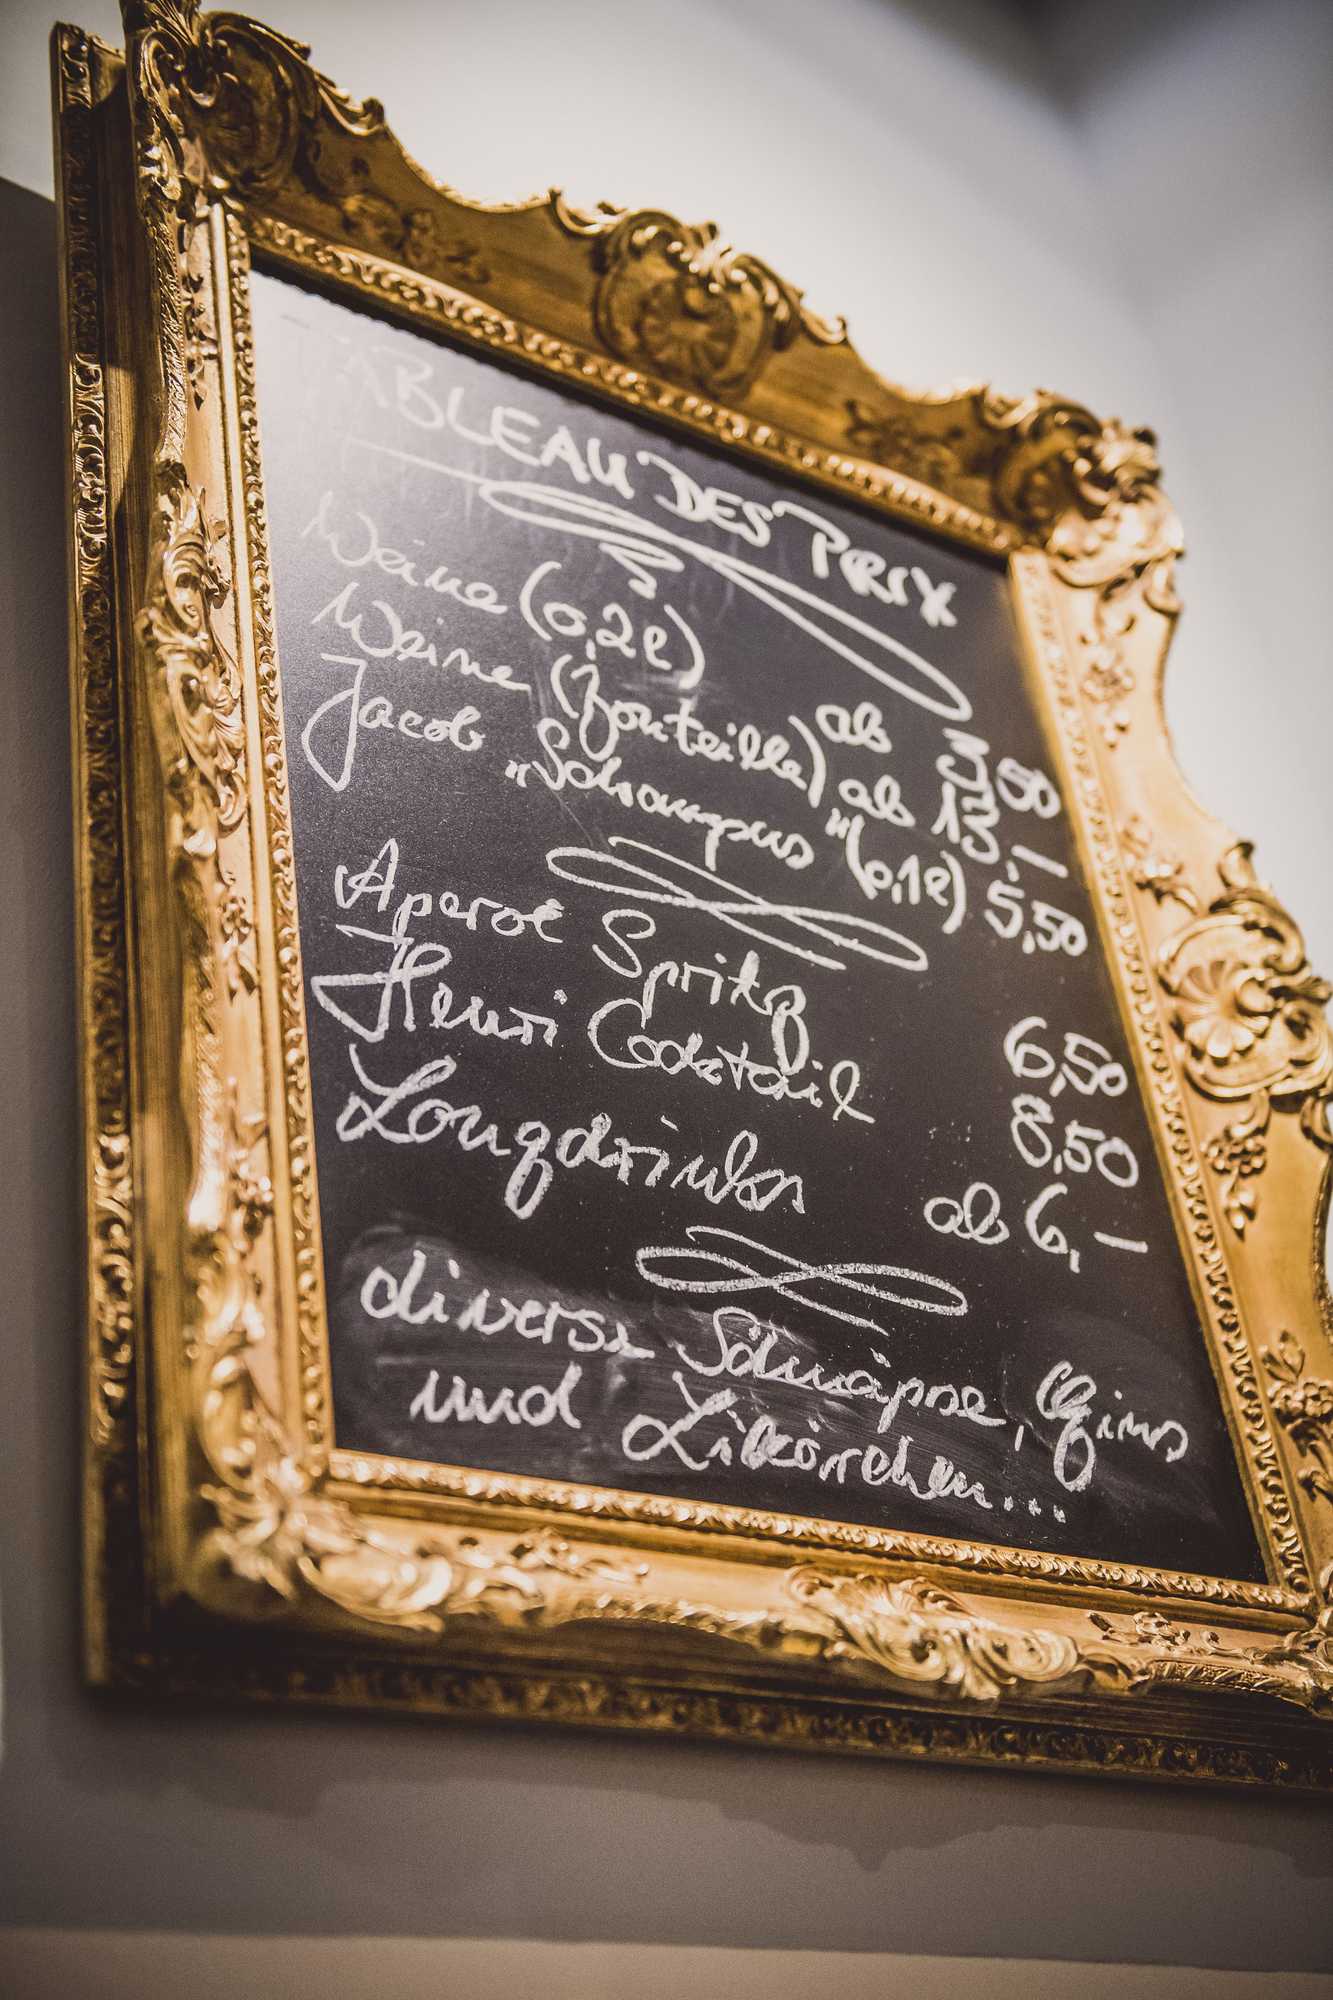 TABLEAU DES PRIX
Weine (0,2l) ab 3,50
Weine (Bouteille) ab 13,—
Jacob "Schampus" (0,1l) 5,50
Aperol Spritz 6,50
Henri Cocktail 8,50
Longdrinks ab 6,—
diverse Schnäpse, Gins
und Likörchen...